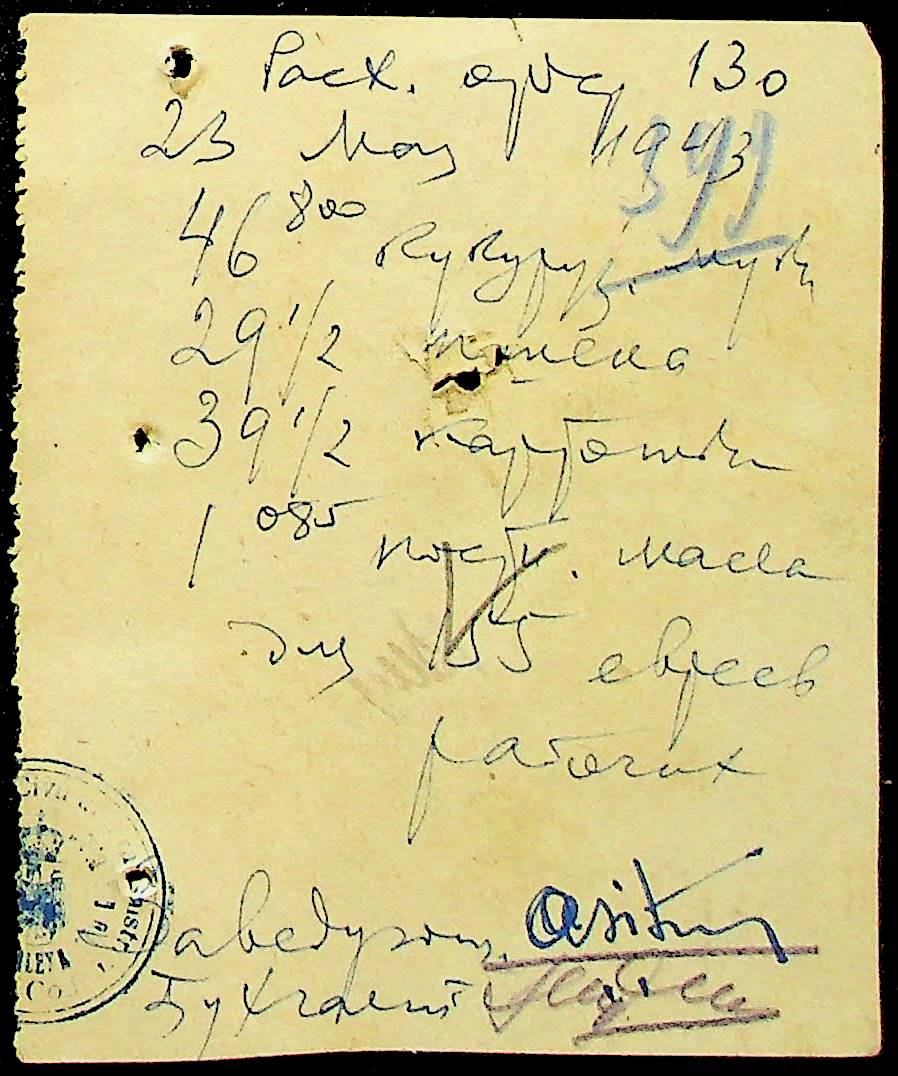 Расх. орд. 130
23 Мая 1943
399
46 800 кукуруз. муки
29 1/2 пшена
39 1/2 картошки
1 085 постн. масла
для 155 евреев
рабочих
Заведующ.
Бухгалт.